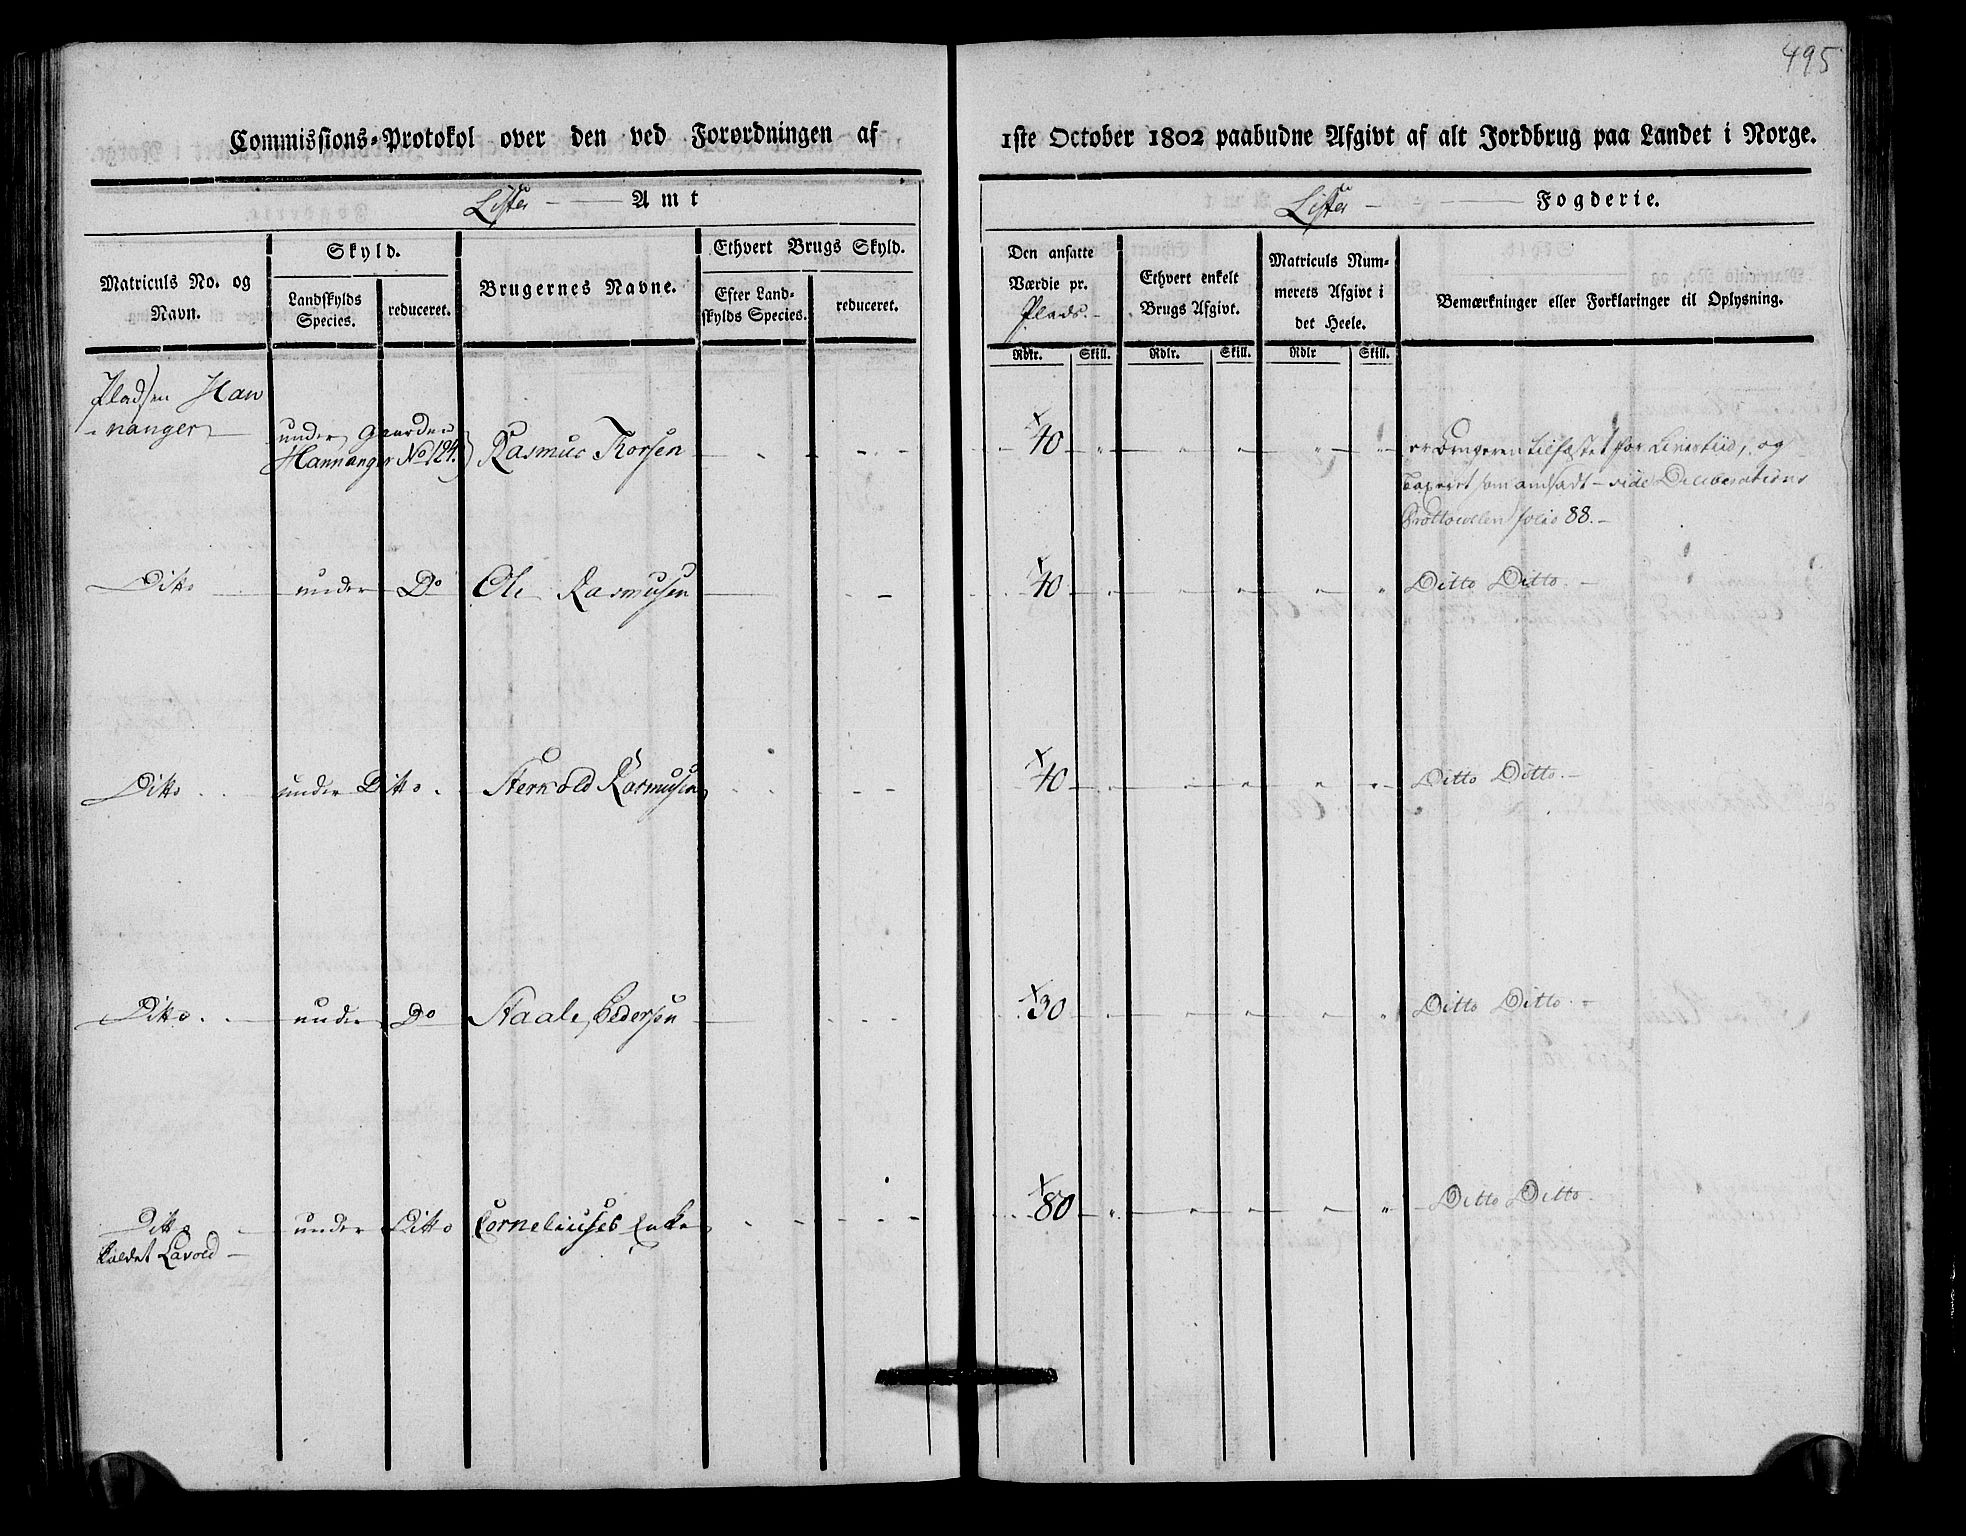 495
Commissions-Protokol over den ved Forordningen af 1ste October 1802 paabudne Afgivt af alt Jordbrug paa Landet i Norge.
Lister Amt
Lister Fogderie.
Matriculs No. og Navn.
Skyld.
Landskylds Species.
reduceret.
Brugernes Navne.
Ethvert Brugs Skyld.
Efter Land-
skylds Species.
reduceret.
Den ansatte
Værdie pr.
Plads.
Ethvert enkelt
Brugs Afgivt.
Matriculs Num-
merets Afgivt i
det Heele.
Bemærkninger eller Forklaringer til Oplysning.
Rdlr. Skill. Rdlr. Skill. Rdlr Skill.
Pladsen Han
nanger
under Gaarden
Hannanger No 124.
Rasmus Thorsen
40
er Brugeren tilfæstet for Livestiid, og
taxeret som ansadt - vide Deliberations
Prottocollen folio 88.
Ditto under Do Ole Rasmusen 40 Ditto Ditto.
Ditto under Ditto Rasmusen 40 Ditto Ditto.
Ditto under Do Staale Pedersen 30 Ditto Ditto.
Ditto under Ditto Corneliuses Enke 80 Ditto Ditto.
kaldet Lavold